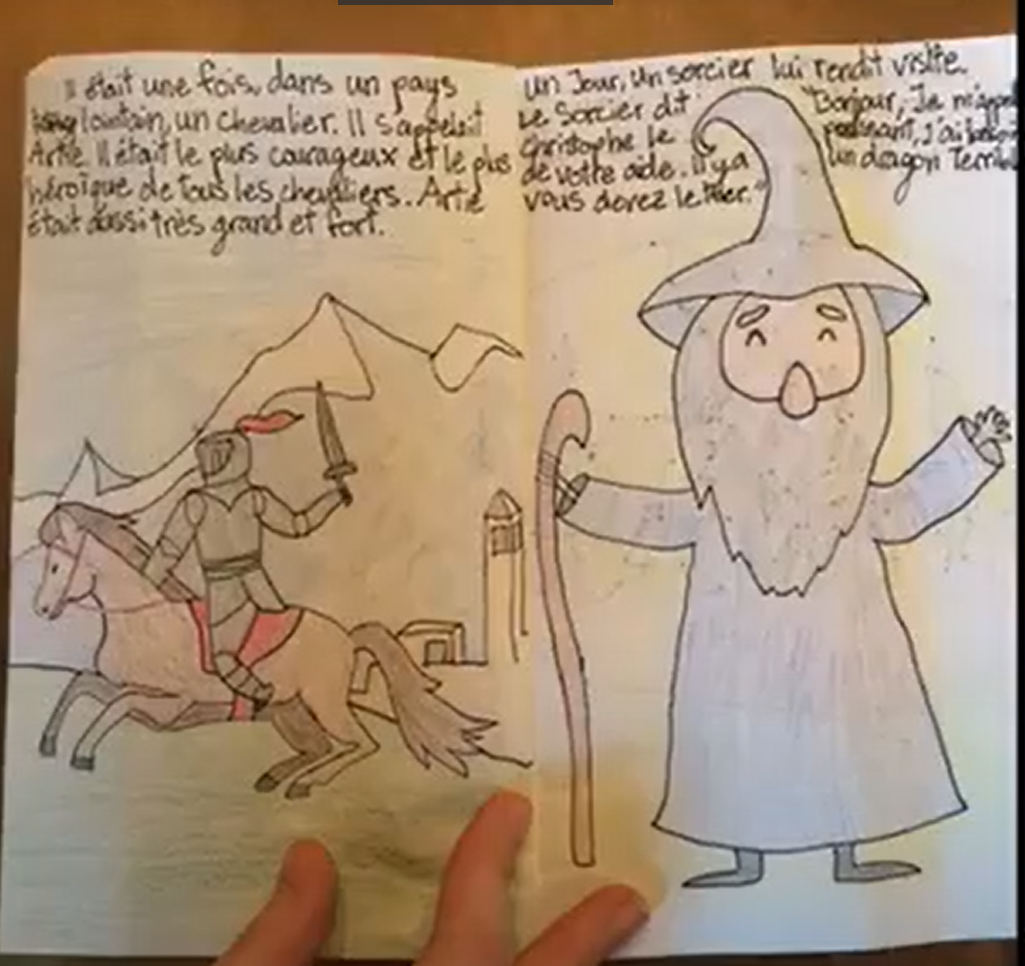 Il était une fois, dans un pays
lointain, un chevalier. Il s'appelait
Artie. Il était le plus courageux et le plus
héroïque de tous les chevaliers. Artie
était aussi très grand et fort.
un Jour, un sorcier lui rendit visite.
Le Sorcier dit "Bonjour, Je m'appel
christophe le puissant, J'ai besoin
de votre aide. Il y a un dragon Terrib
vous devez le tuer."